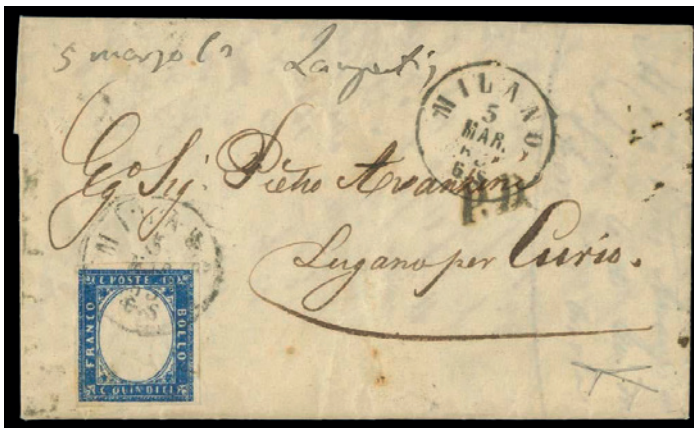 5 marzo 63
MILANO
5
MAR.
63
P.D.
Eg.º Sig. Pietro Avanzini
Lugano per Curio.
MILANO
C. POSTE 15
FRANCO
BOLLO
C. QUINDICI